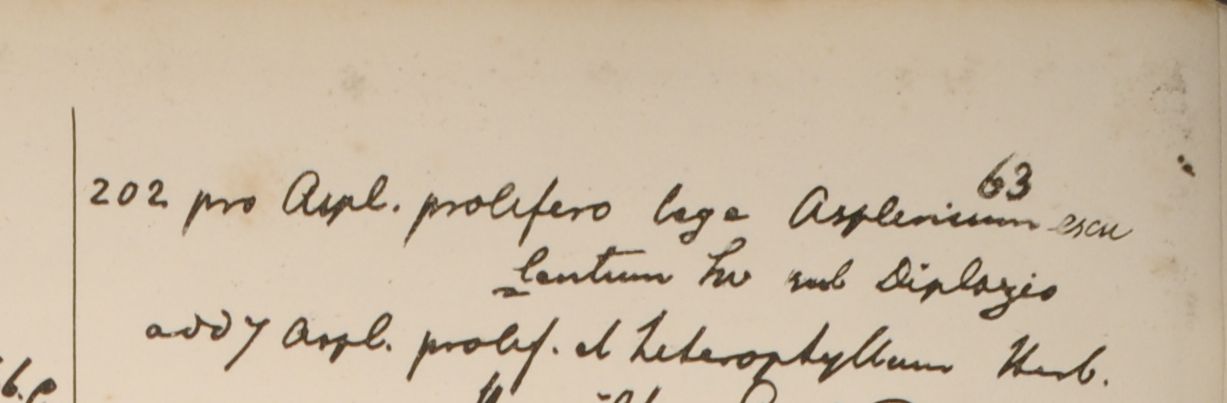 63
202 pro Aspl. prolifero lege Asplenium escu
lentum Sw sub Diplazio
add 7 Aspl. prolif. et heterophyllum Herb.